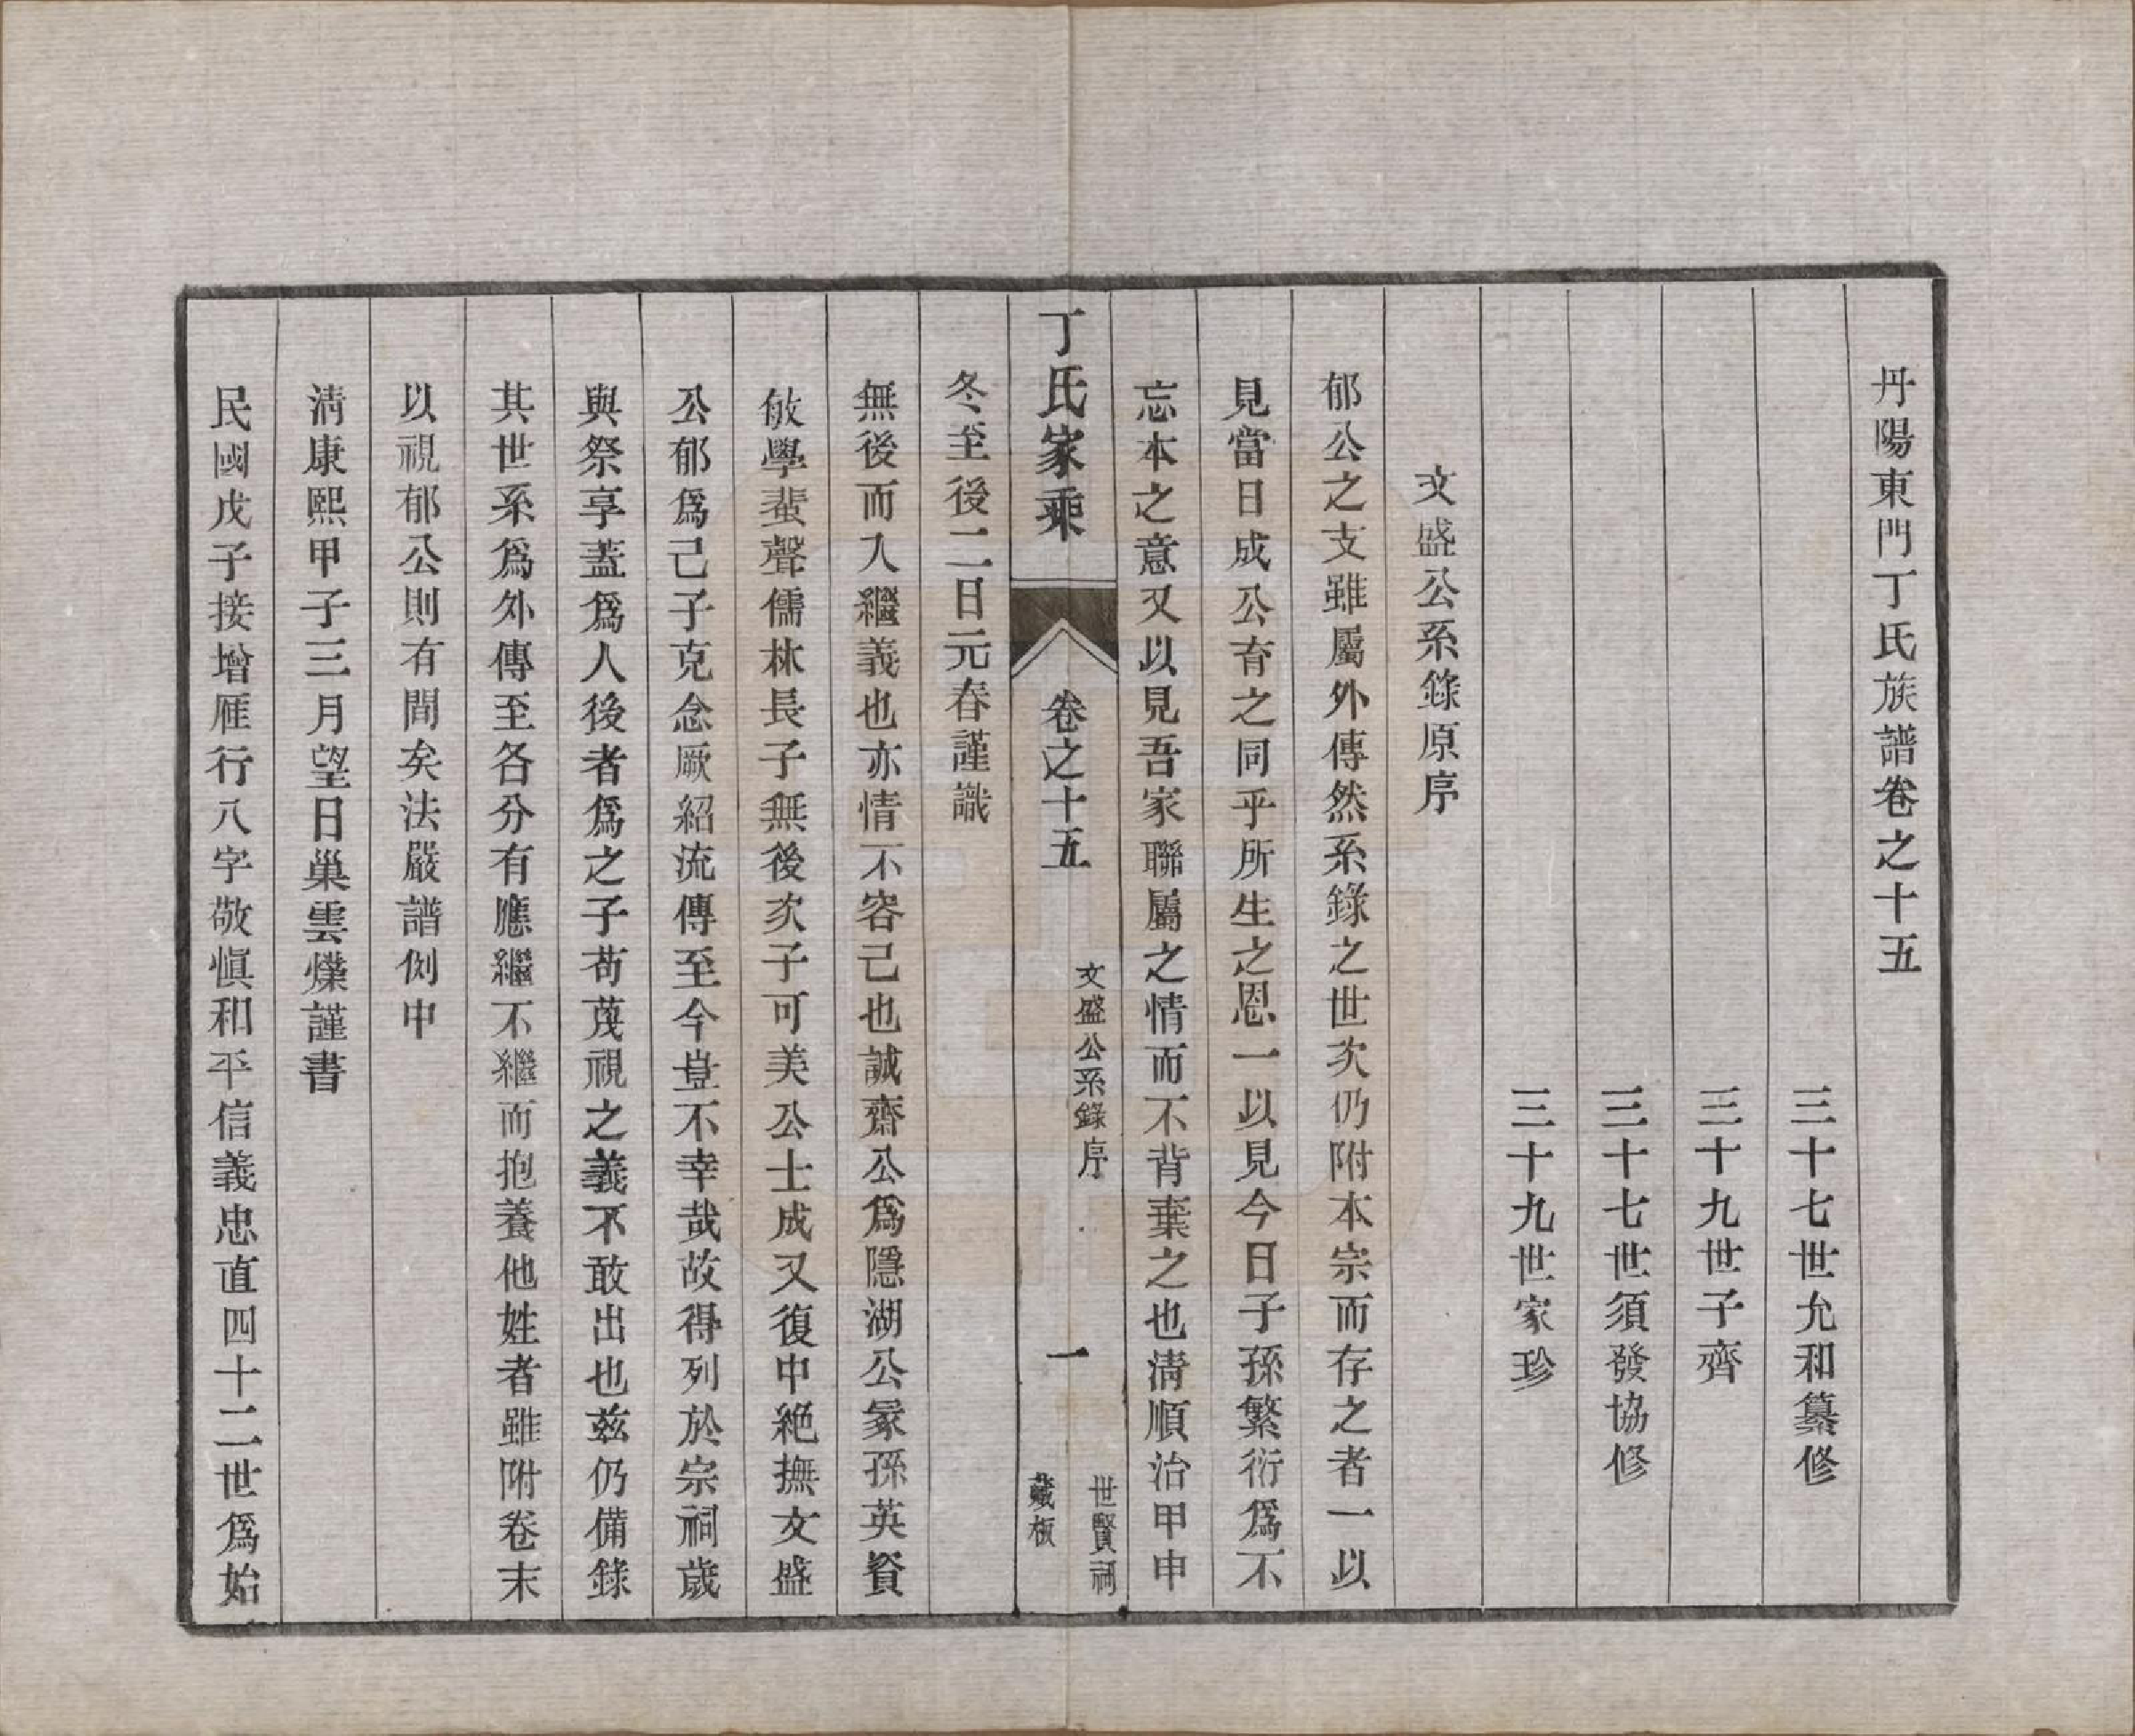 丹陽東門丁氏族譜卷之十五
三十七世允和纂修
三十九世子齊
三十七世須發協修
三十九世家珍
文盛公系錄原序
郁公之支雖屬外傳然系錄之世次仍附本宗而存之者一以
見當日成公育之同乎所生之恩一以見今日子孫繁衍爲不
忘本之意又以見吾家聯屬之情而不背棄之也清順治甲申
丁氏家乘
卷之十五
文盛公系錄序
一
世賢祠
藏板
冬至後二日元春謹識
無後而入繼義也亦情不容己也誠齋公爲隱湖公冢孫英資
敏學蜚聲儒林長子無後次子可美公士成又復中絕撫文盛
公郁爲己子克念厥紹流傳至今豈不幸哉故得列於宗祠歲
與祭享蓋爲人後者爲之子茍蔑視之義不敢出也茲仍備錄
其世系爲外傳至各分有應繼不繼而抱養他姓者雖附卷末
以視郁公則有間矣法嚴譜例中
清康熙甲子三月望日巢雲爗謹書
民國戊子接增雁行八字敬愼和平信義忠直四十二世爲始